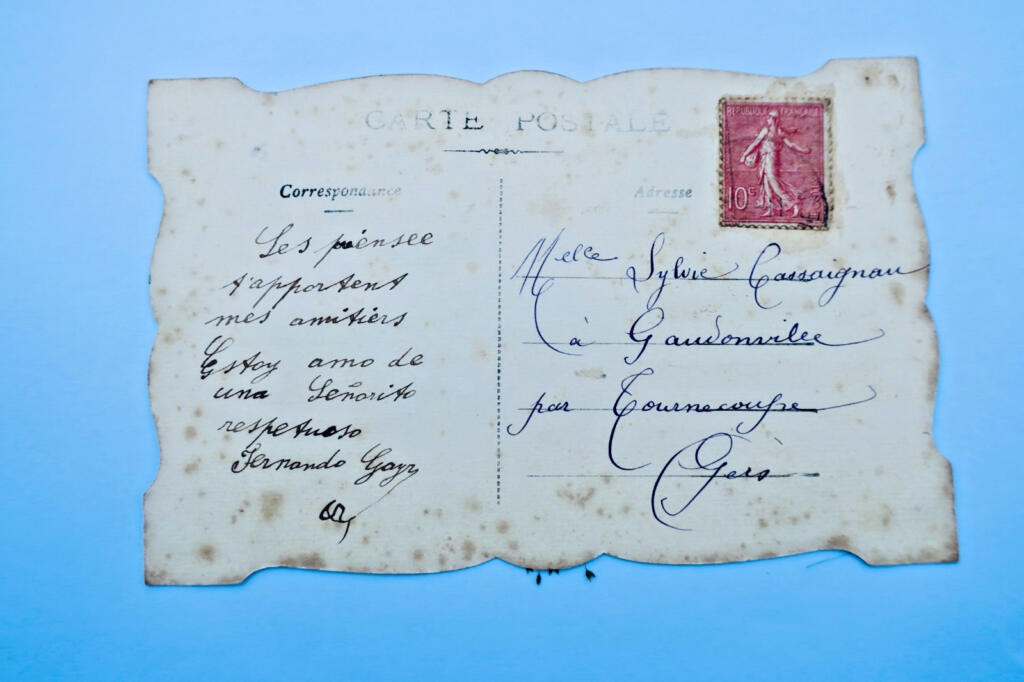 CARTE POSTALE
REPUBLIQUE FRANÇAISE
10c
Correspondance
Les piensee
t'apportent
mes amitiers
Estoy amo de
una Señorito
respetuoso
Fernando Gayr
Adresse
Melle Sylvie Cassaignau
à Gaudonville
par Tournecoupe
Gers